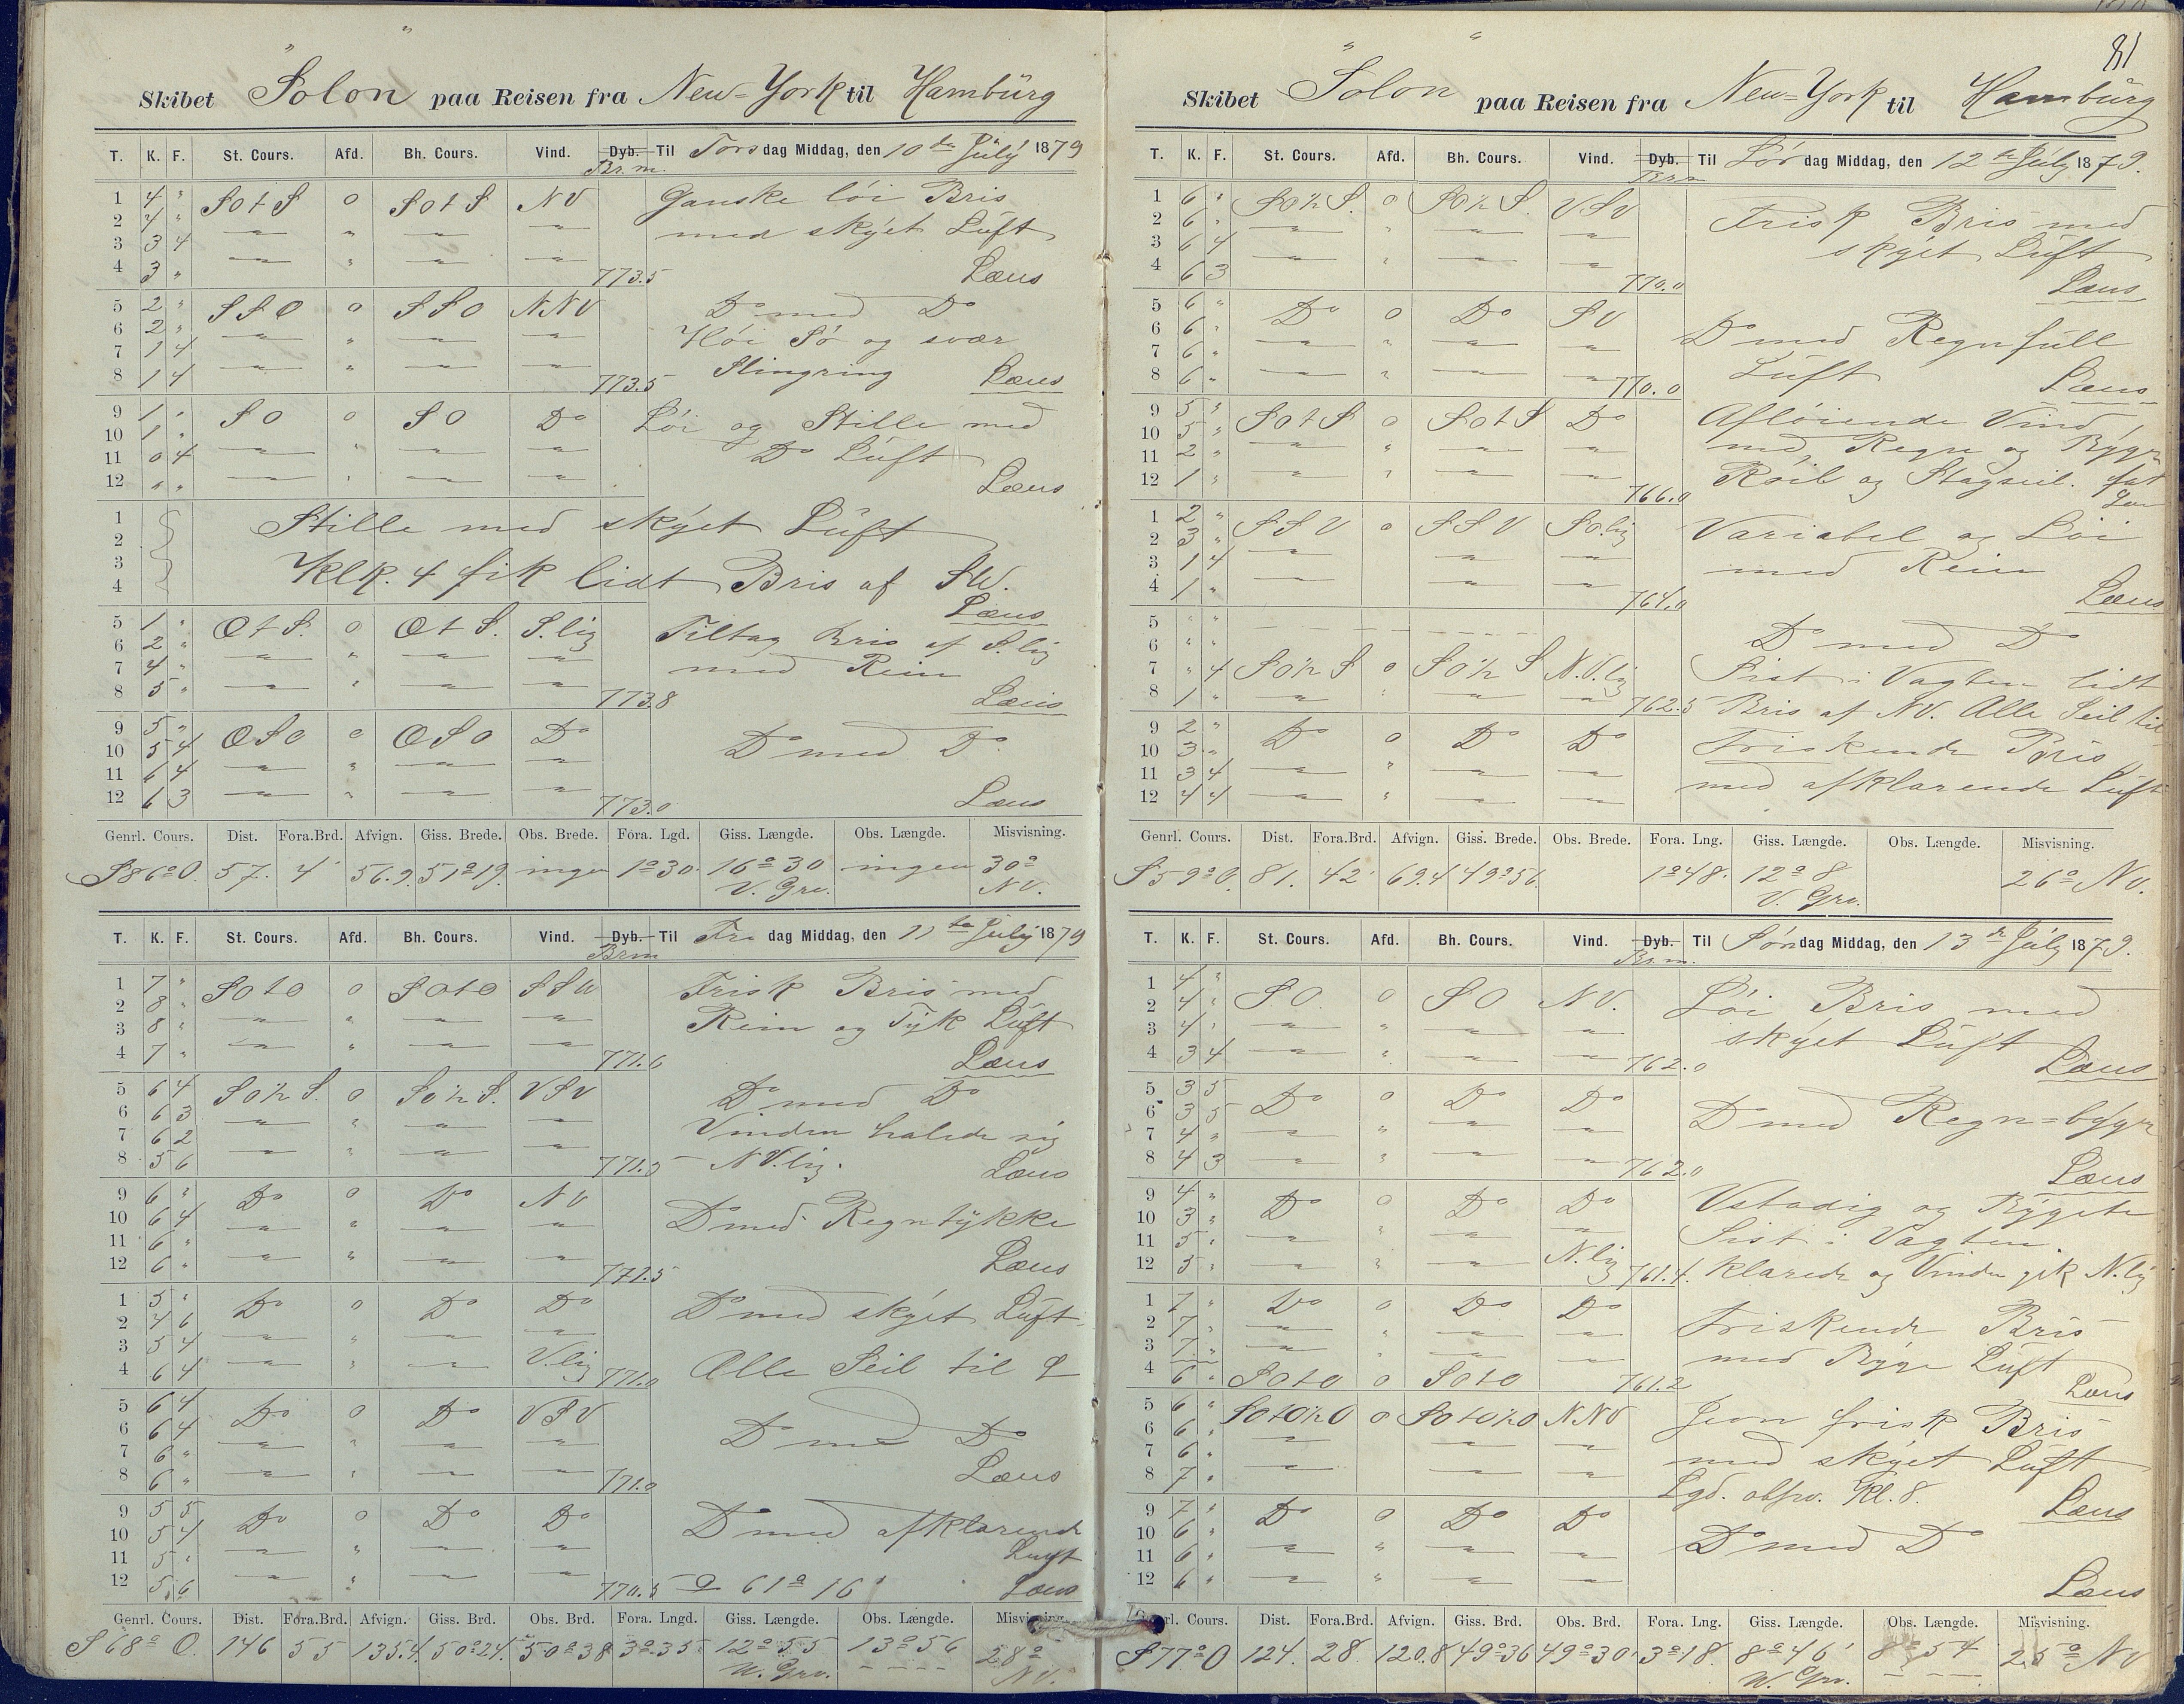 Skibet "Solon" paa Reisen fra New-York til Hamburg
T. K. F. St. Cours. Afd. Bh. Cours. Vind. Dyb. Til Torsdag Middag, den 10de Júlÿ 1879
Br.m.
1 4 " SOtS 0 SOtS NV Ganske löi Bris
2 4 " med skÿet Lúft
3 3 4
4 3 " 773.5 Læns
5 2 " SSO 0 SSO NNV Do med Do
6 2 " Höi Sö og svær
7 1 4 Slingring
8 1 4 773.5 Læns
9 1 " SO 0 SO Do Löi og Stille med
10 1 " Do Lúft
11 0 4
12 " " Læns
1 Stille med skÿet Lúft
2
3 Klk. 4 fik lidt Bris af SW.
4 Læns
5 1 " OtS. 0 OtS. S.lig Tiltag Bris af S.lig
6 2 " med Rein
7 4 "
8 5 " 773.8 Læns
9 5 " OSO 0 OSO Do Do med Do
10 5 4
11 6 4
12 6 3 773.0 Læns
Genrl. Cours. Dist. Fora.Brd. Afvign. Giss. Brede. Obs. Brede. Fora. Lgd. Giss. Længde. Obs. Længde. Misvisning.
S86°O. 57. 4' 56.9 51°19. ingen 1°30 16°30 ingen 30°
V. Grv. NV.
T. K. F. St. Cours. Afd. Bh. Cours. Vind. Dyb. Til Fredag Middag, den 11te Júlÿ 1879
Brm
1 7 " SOtO 0 SOtO SSW Frisk Bris med
2 8 " Rein og Tÿk Lúft
3 8 "
4 7 " 771.6 Læns
5 6 4 SO½S. 0 SO½S. VSV Do med Do
6 6 3 Vinden halede sig
7 6 2 NV.lig.
8 5 6 771.5 Læns
9 6 " Do 0 Do NV Do med Regntÿkke
10 6 4
11 6 "
12 6 " 771.5 Læns
1 5 " Do 0 Do Do Do med skÿet Lúft
2 4 6
3 5 4 V.lig Alle Seil til
4 6 4 771.0
5 6 4 Do 0 Do VSV Do med Do
6 6 4
7 6 "
8 6 " 771.0 Læns
9 5 5 Do 0 Do Do Do med afklarende
10 5 4 Luft
11 5 "
12 5 6 770.5 61° 16' Læns
Genrl. Cours. Dist. Fora.Brd. Afvign. Giss. Brd. Obs. Brd. Fora. Lngd. Giss. Længde. Obs. Længde. Misvisning.
S68°O. 146 55 135.4. 50°24. 50°38 3°35 12°55 13°56 28°
W. Grv. NV.
81
Skibet "Solon" paa Reisen fra New-York til Hamburg
T. K. F. St. Cours. Afd. Bh. Cours. Vind. Dyb. Til Lördag Middag, den 12te Júlÿ 1879.
Brm
1 6 " SO½S. 0 SO½S. VSV Frisk Bris med
2 6 " skÿet Lúft
3 6 4
4 6 3 770.0 Læns
5 6 " Do 0 Do SV Do med Regnfúll
6 6 " Lúft
7 6 "
8 6 " 770.0 Læns
9 5 " SOtS 0 SOtS Do Aflöiende Vind
10 5 " med Regn og Bÿger
11 2 " Röil og Stagseil. fast
12 1 " 766.0
1 2 " SSV 0 SSV SO.lig Variabel og Löi
2 3 " med Rein
3 1 4
4 1 " 764.0 Læns
5 " " Do med Do
6 " "
7 " 4 SO½S 0 SO½S N.V.lig Sist i Vagten lidt
8 1 " 762.5 Bris af NV. Alle Seil til
9 2 " Do 0 Do Do Friskende Bris
10 3 " med afklarende Lúft
11 3 4
12 4 4
Genrl. Cours. Dist. Fora.Brd. Afvign. Giss. Brede. Obs. Brede. Fora. Lng. Giss. Længde. Obs. Længde. Misvisning.
S59°O. 81. 42' 69.4 49°56. 1°48. 12°8 26° NV.
V. Grv.
T. K. F. St. Cours. Afd. Bh. Cours. Vind. Dyb. Til Söndag Middag, den 13de Júlÿ 1879.
Br.m.
1 4 " SO. 0 SO NV. Löi Bris med
2 4 " skÿet Lúft
3 4 "
4 3 4 762.0 Læns
5 3 5 Do 0 Do Do Do med Regn=bÿger
6 3 5
7 4 "
8 4 3 762.0 Læns
9 4 " Do 0 Do Do Ustadig og Bÿgete
10 3 " Sist i Vagten
11 5 " N.lig
12 5 " 761.4. klarede og Vinden gik N.lig
1 7 " Do 0 Do Do Friskende Bris
2 7 " med Bÿge Lúft
3 7 "
4 6 " SOtO 0 SOtO 761.2 Læns
5 6 " SOtO½O 0 SOtO½O NNV Jevn frisk Bris
6 6 " med skÿet Lúft
7 6 "
8 7 " Lgd. obsv. Kl. 8. Læns
9 7 " Do 0 Do Do Do med Do
10 6 "
11 6 "
12 6 " Læns
Genrl. Cours. Dist. Fora.Brd. Afvign. Giss. Brd. Obs. Brd. Fora. Lng. Giss. Længde. Obs. Længde. Misvisning.
S77°O 124. 28. 120.8 49°36 49°30' 3°18. 8°46' 8°54 25° NV
W. Grv.